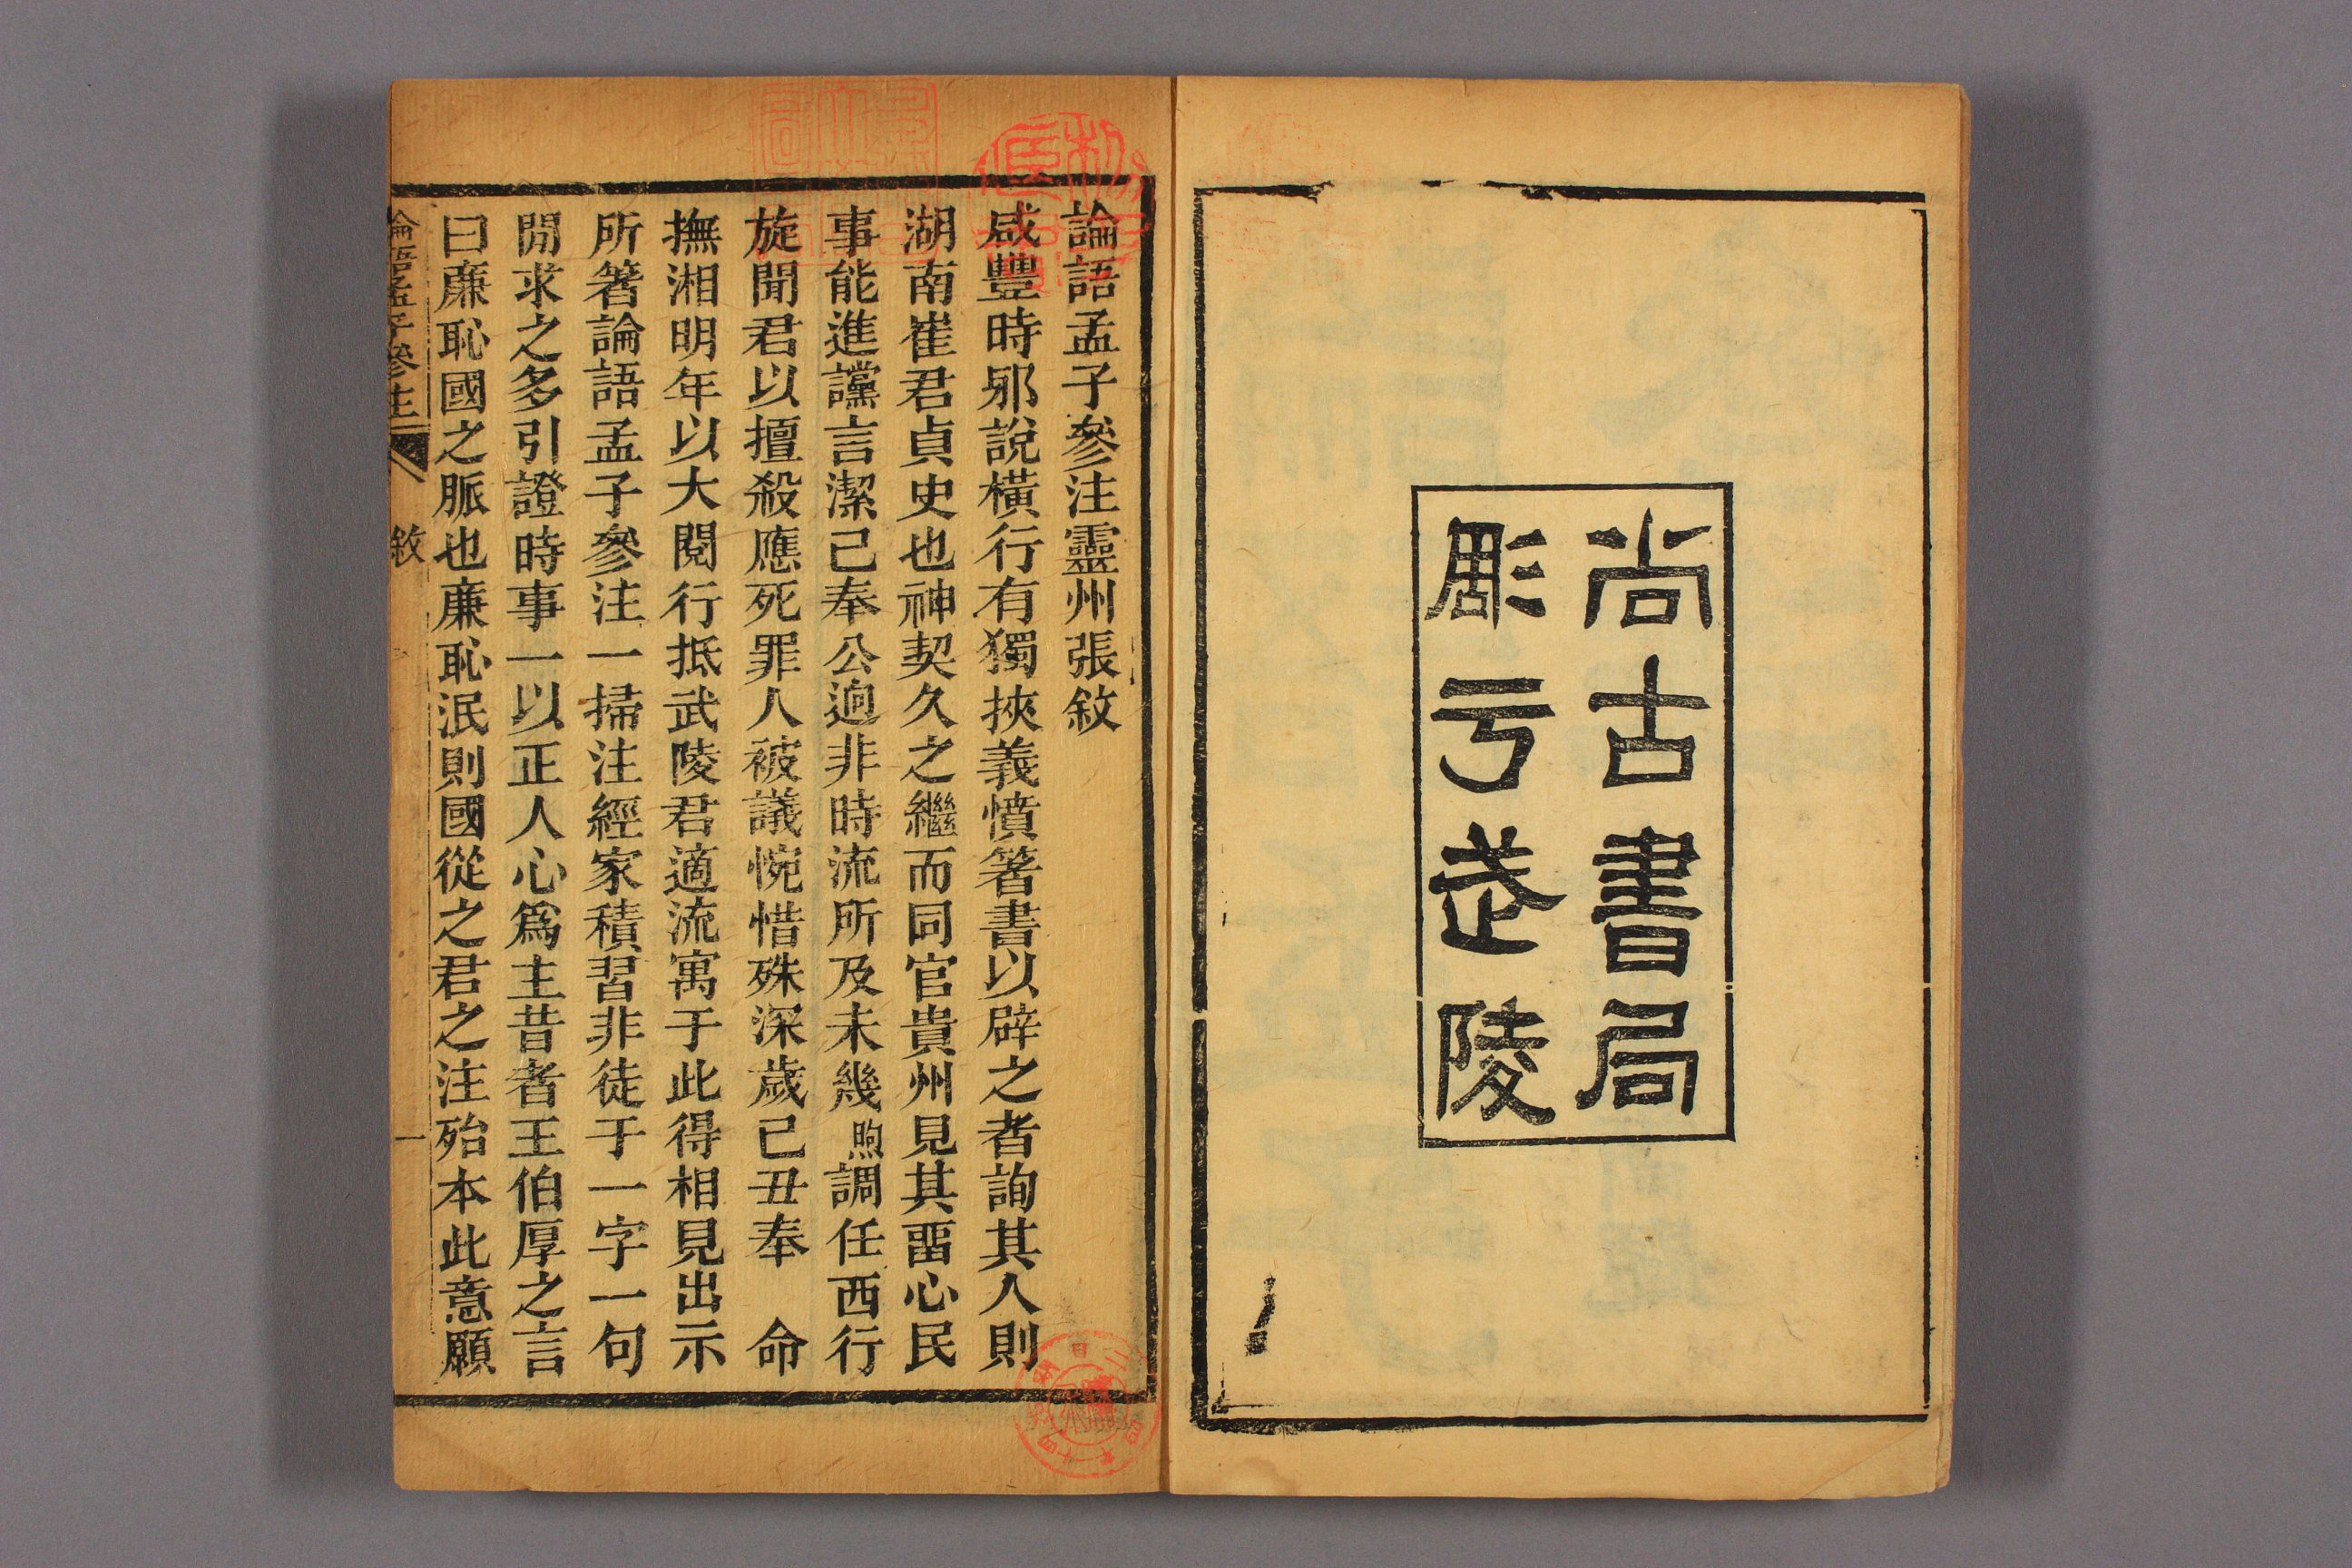 尚古書局
彫亏武陵
論語孟子參注靈州張敘
咸豐時邪說橫行有獨挾義憤箸書以辟之者詢其人則
湖南崔君貞史也神契久之繼而同官貴州見其畱心民
事能進讜言潔己奉公迥非時流所及未幾煦調任西行
旋聞君以擅殺應死罪人被議惋惜殊深歲己丑奉　命
撫湘明年以大閱行抵武陵君適流寓于此得相見出示
所箸論語孟子參注一掃注經家積習非徒于一字一句
閒求之多引證時事一以正人心爲主昔者王伯厚之言
曰廉恥國之脈也廉恥泯則國從之君之注殆本此意願
論語孟子參注　敘　一